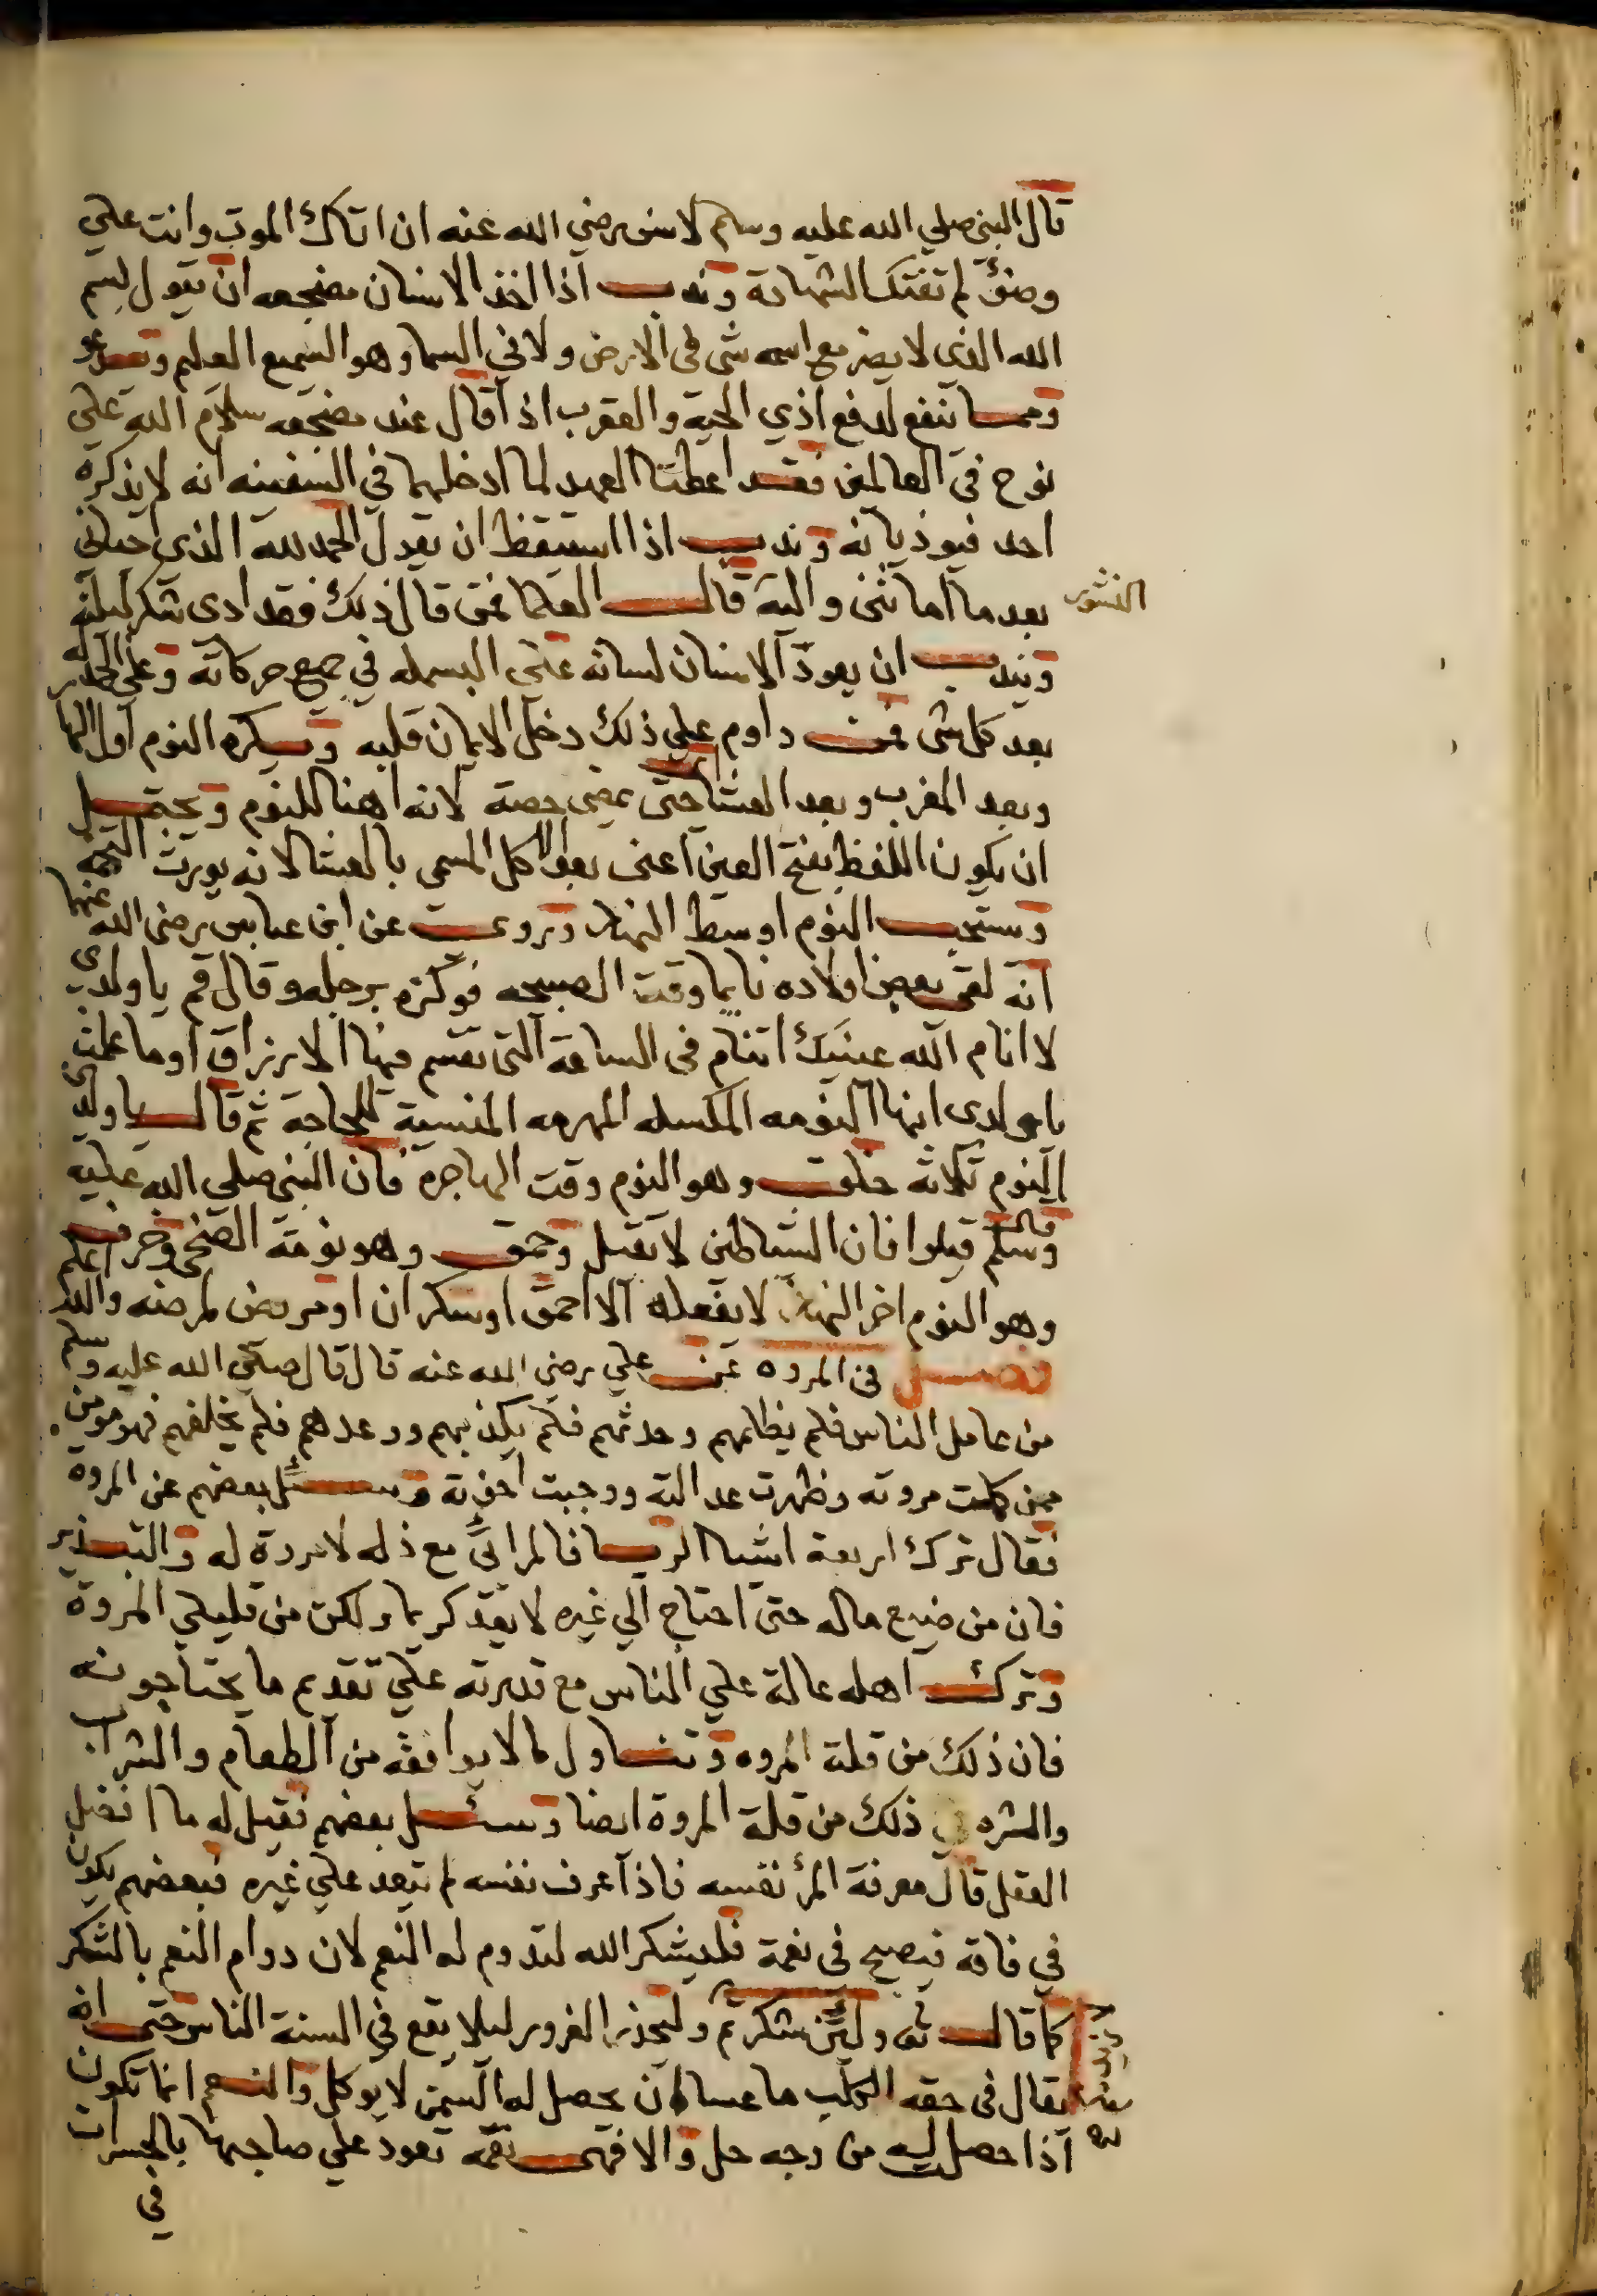 قال النبي صلي الله عليه وسلم لانس رضي الله عنه ان اتاك الموت وانت علي
وضوء لم تفتك الشهادة وندب اذا اخذ الانسان مضجعه ان يقول بسم
الله الذي لا يضر مع اسمه شي في الارض ولا في السما وهو السميع العليم
ومما ينفع لدفع اذي الحية والعقرب اذا قال عند مضجعه سلام الله علي
نوح في العالمين فقد اعطتا العهد لما ادخلهما في السفينه انه لا يذكره
احد فيوذيانه وندب اذا استيقظ ان يقول الحمد لله الذي احياني
بعد ما اماتني واليه النشور قالت العلما فمن قال ذلك فقد ادي شكر ليلته
ويندب ان يعود الانسان لسانه علي البسمله في جميع حركاته وعلي الحمدله
بعد كل شي فمن داوم علي ذلك دخل الايمان قلبه ويكره النوم اول النهار
وبعد المغرب وبعد العشا حتي يمضي حصة لانه اهنا للنوم ويحتمل
ان يكون اللفظ بفتح العين اعني بعد الاكل المسمي بالعشا لانه يورث التخمه
ويستحب النوم اوسط النهار وروي عن ابن عباس رضي الله عنهما
انه لقي بعض اولاده نايما وقت الصبيحه فوكزه برجله وقال قم يا ولدي
لا انام الله عينيك اتنام في الساعة التي تقسم فيها الارزاق اوما علمت
يا ولدي انها النومه المكسله المهرمه المنسية للحاجة ثم قال يا ولدي
النوم ثلاثه خلق وهو النوم وقت الهاجرة فان النبي صلي الله عليه
وسلم قال قيلوا فان الشياطين لا تقيل وحمق وهو نومة الضحي وخرق
وهو النوم اخر النهار لا يفعله الا احمق او سكران او مريض لمرضه والله اعلم
فصل في المروه عن علي رضي الله عنه قال قال صلي الله عليه وسلم
من عامل الناس فلم يظلمهم وحدثهم فلم يكذبهم ووعدهم فلم يخلفهم فهو مومن
ممن كملت مروته وظهرت عدالته ووجبت اخوته وسئل بعضهم عن المروة
فقال ترك اربعة اشيا الريا فالمرائي مع ذله لا مروة له والتبذير
فان من ضيع ماله حتي احتاج الي غيره لا يعد كريما ولكن من قليلي المروة
وترك اهله عالة علي الناس مع قدرته علي تقديم ما يحتاجونه
فان ذلك من قلة المروه وتناول ما لا يوافقه من الطعام والشراب
والشره في ذلك من قلة المروة ايضا وسئل بعضهم فقيل له ما افضل
العقل قال معرفة المرء نفسه فاذا عرف نفسه لم يتعد علي غيره فبعضهم يكون
في فاقة فيصبح في نعمة فليشكر الله لتدوم له النعم لان دوام النعم بالشكر
كما قال تعالى ولئن شكرتم وليحذر الغرور ليلا يقع في السنة الناس حتي انه
يقال في حقه الكلب ما عساه ان يحصل له السمن لا يوكل والنعم انما تكون
اذا حصل اليه من وجه حل والا فهي نقمة تعود علي صاحبها بالخسران
في